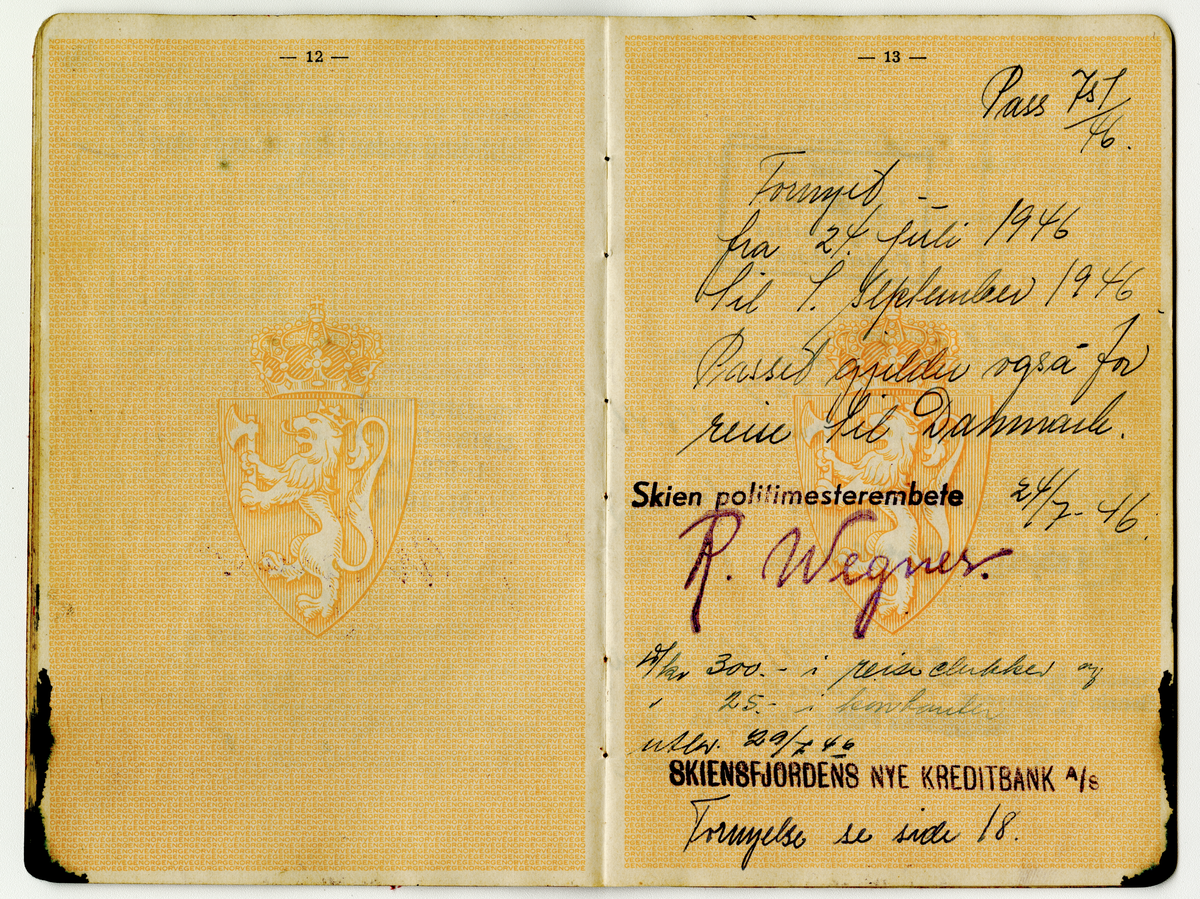 — 12 —
— 13 —
Pass 751/46.
Fornyet –
fra 24. juli 1946
til 1. September 1946
Passet gjelder også for
reise til Danmark.
Skien politimesterembete 24/7-46.
R. Wegner.
kr 300.- i reisechekker og
" 25.- i kontanter
utlev. 29/7 46
SKIENSFJORDENS NYE KREDITBANK A/S
Fornyelse se side 18.